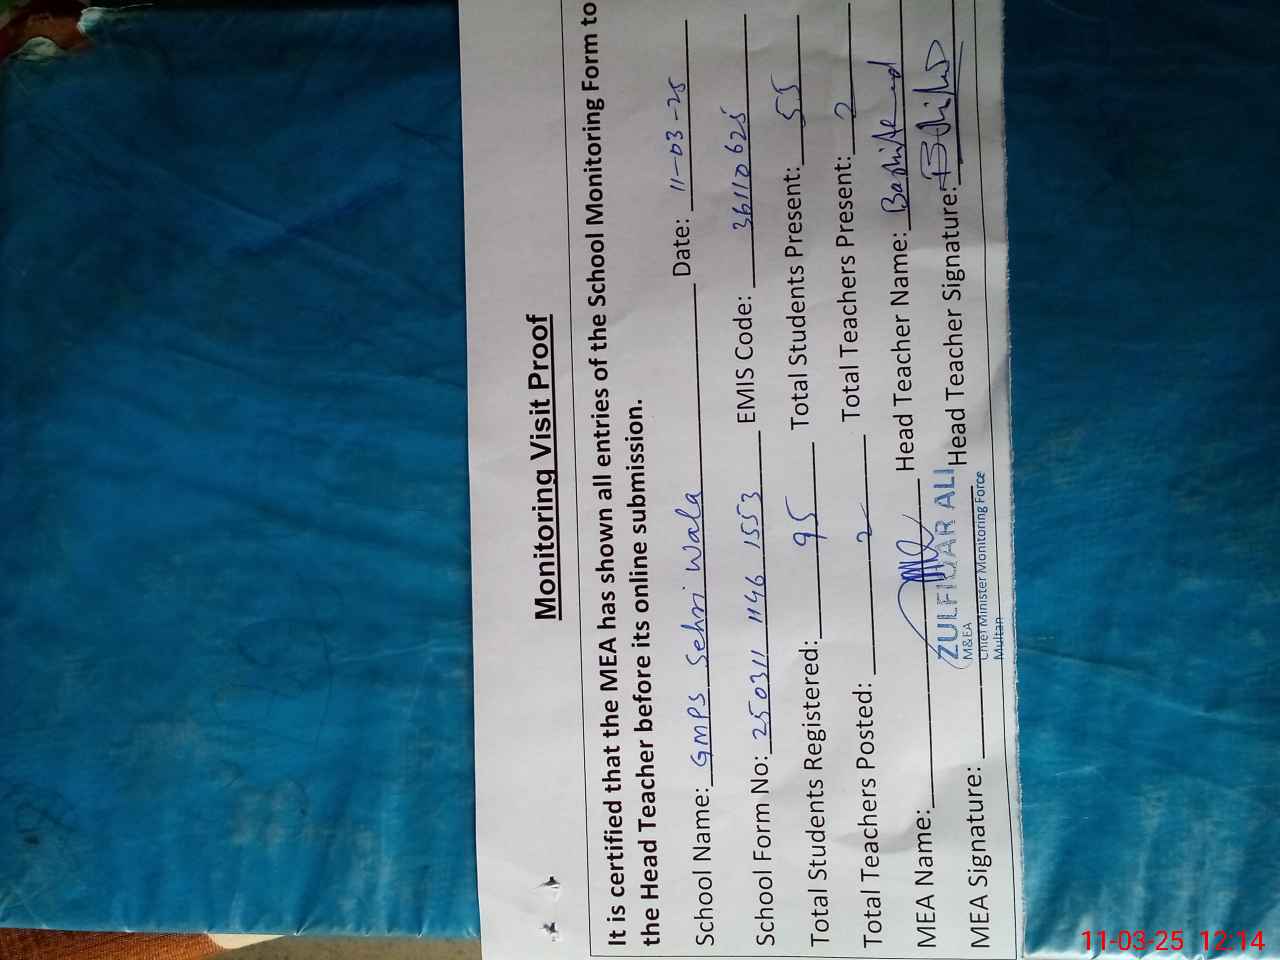 Monitoring Visit Proof
It is certified that the MEA has shown all entries of the School Monitoring Form to
the Head Teacher before its online submission.
School Name: GMPS Sehri Wala Date: 11-03-25
School Form No: 250311 1146 1553 EMIS Code: 36110625
Total Students Registered: 95 Total Students Present: 55
Total Teachers Posted: 2 Total Teachers Present: 2
MEA Name: Head Teacher Name:
ZULFIQAR ALI
MEA Signature: Head Teacher Signature:
M&EA
Chief Minister Monitoring Force
Multan
11-03-25 12:14